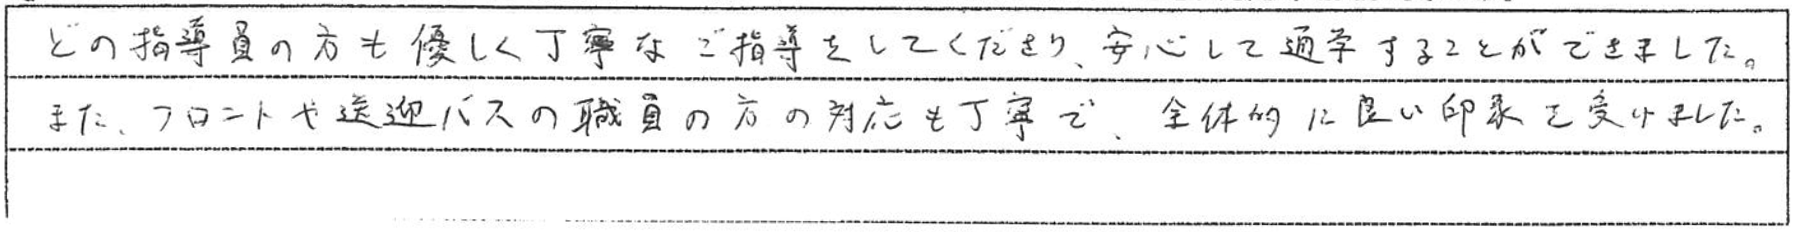 どの指導員の方も優しく丁寧なご指導をしてくださり、安心して通学することができました。
また、フロントや送迎バスの職員の方の対応も丁寧で、全体的に良い印象を受けました。